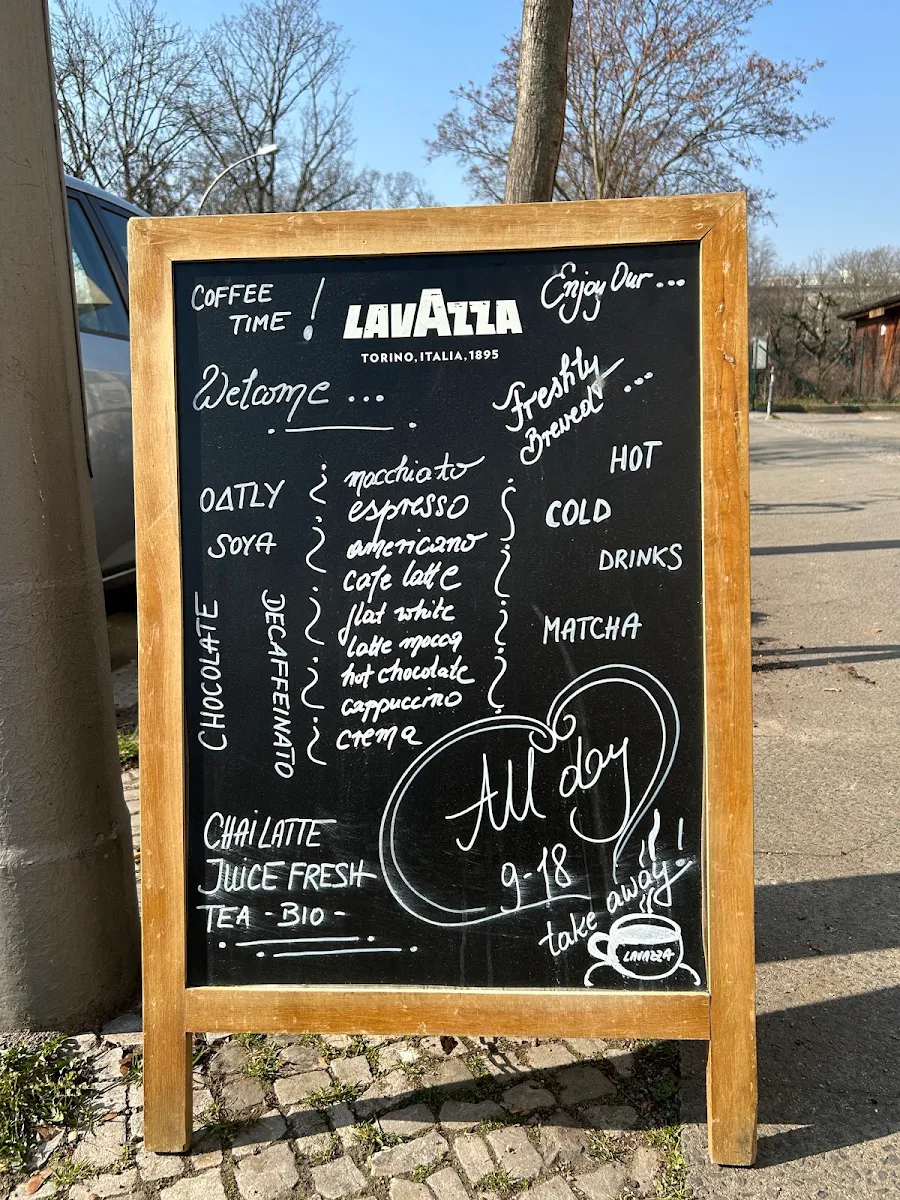 COFFEE
TIME !
LAVAZZA
TORINO, ITALIA, 1895
Enjoy Our ...
Welcome ...
Freshly
Brewed ...
OATLY
SOYA
CHOCOLATE
DECAFFEINATO
macchiato
espresso
americano
cafe latte
flat white
latte mocca
hot chocolate
cappuccino
crema
HOT
COLD
DRINKS
MATCHA
All day
9-18
CHAI LATTE
JUICE FRESH
TEA - BIO -
take away!
LAVAZZA